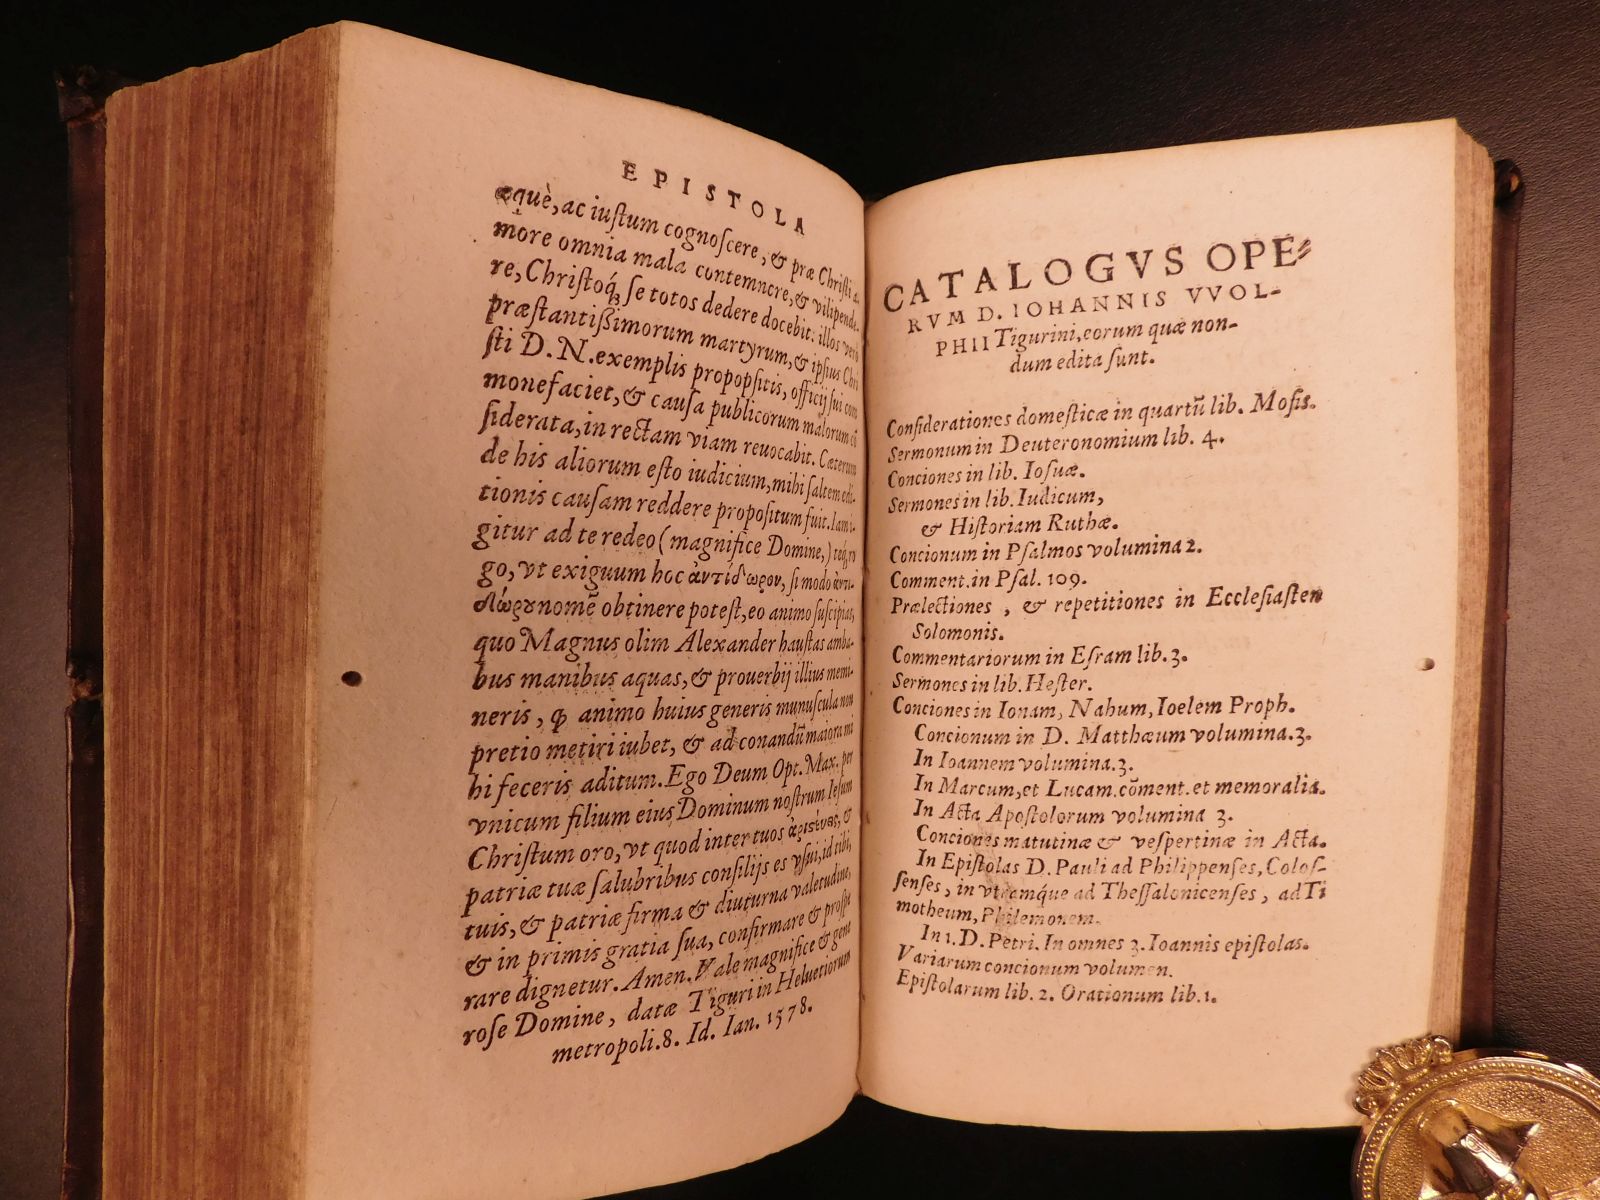 EPISTOLA
æquè, ac iuſtum cognoſcere, & præ Chriſti a-
more omnia mala contemncre, & vilipende-
re, Chriſtoq́; ſe totos dedere docebit: illos verò
præſtantißimorum martyrum, & ipſius Chri
ſti D. N. exemplis propopſitis, officij ſui com
monefaciet, & cauſa publicorum malorum cō
ſiderata, in rectam viam reuocabit. Cæterum
de his aliorum eſto iudicium, mihi ſaltem edi-
tionis cauſam reddere propoſitum fuit. Iam i-
gitur ad te redeo (magnifice Domine,) teq́; ro
go, vt exiguum hoc ἀντίδωρον, ſi modo ἀντι-
δώρου nomē obtinere poteſt, eo animo ſuſcipias,
quo Magnus olim Alexander hauſtas amba-
bus manibus aquas, & prouerbij illius memi-
neris, ꝙ animo huius generis munuſcula non
pretio metiri iubet, & ad conandū maiora mi
hi feceris aditum. Ego Deum Opt. Max. per
vnicum filium eius Dominum noſtrum Ieſum
Chriſtum oro, vt quod inter tuos ἀριστέας, &
patriæ tuæ ſalubribus conſilijs es vſui, id tibi,
tuis, & patriæ firma & diuturna valetudine,
& in primis gratia ſua, confirmare & proſpe
rare dignetur. Amen. Vale magnifice & gene
roſe Domine, datæ Tiguri in Heluetiorum
metropoli. 8. Id. Ian. 1578.
CATALOGVS OPE-
RVM D. IOHANNIS VVOL-
PHII Tigurini, eorum quæ non-
dum edita ſunt.
Conſiderationes domeſticæ in quartū lib. Moſis.
Sermonum in Deuteronomium lib. 4.
Conciones in lib. Ioſuæ.
Sermones in lib. Iudicum,
& Hiſtoriam Ruthæ.
Concionum in Pſalmos volumina 2.
Comment. in Pſal. 109.
Prælectiones, & repetitiones in Eccleſiaſten
Solomonis.
Commentariorum in Eſram lib. 3.
Sermones in lib. Heſter.
Conciones in Ionam, Nahum, Ioelem Proph.
Concionum in D. Matthæum volumina. 3.
In Ioannem volumina. 3.
In Marcum, et Lucam. cōment. et memoralia.
In Acta Apoſtolorum volumina 3.
Conciones matutinæ & veſpertinæ in Acta.
In Epiſtolas D. Pauli ad Philippenſes, Coloſ-
ſenſes, in vtramq́ue ad Theſſalonicenſes, ad Ti
motheum, Philemonem.
In 1. D. Petri. In omnes 3. Ioannis epiſtolas.
Variarum concionum volumen.
Epiſtolarum lib. 2. Orationum lib. 1.